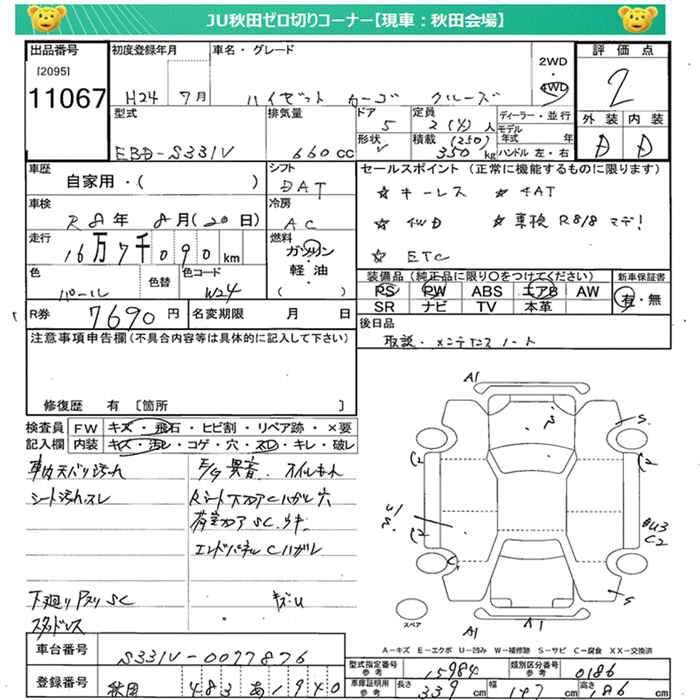 JU秋田ゼロ切りコーナー【現車：秋田会場】
出品番号 初度登録年月 車名・グレード 評価点
[2095] 2WD
11067 H24 7月 ハイゼット カーゴ クルーズ 4WD 2
型式 排気量 ドア 定員 ディーラー・並行 外装 内装
5 2(4)人 モデル年式 年
EBD-S331V 660cc 形状 積載 (250) 350kg ハンドル 左・右 D D
車歴 シフト セールスポイント (正常に機能するものに限ります)
自家用・( ) DAT ☆ キーレス ☆ 4AT
車検 冷房 ☆ 4WD ☆ 車検 R8/8 マデ!
R8年 8月(20日) AC
走行 燃料 ☆ ETC
16万7千090km ガソリン
軽・油
( )
色 色替 色コード 装備品 (純正品に限り〇をつけてください) 新車保証書
パール W24 PS PW ABS エアB AW 有・無
SR ナビ TV 本革
R券 7690円 名変期限 月 日 後日品
取説・メンテナンスノート
注意事項申告欄(不具合内容等は具体的に記入して下さい)
修復歴 有 [箇所 ]
A1
検査員 FW キズ・飛石・ヒビ割・リペア跡・×要
記入欄 内装 キズ・汚レ・コゲ・穴・スレ・キレ・破レ
車内天バリ汚れ E/g異音、オイルもれ
シート汚れ、スレ Rシート下フロアCハガレ穴
荷室フロアSC、サキ
エンドパネルCハガレ
下廻りアオリSC キズ・U
スタッドレス
S.
C2
C2
U1
S.
C2
C.
U3
C2
S
スペア
A1
A1
A－キズ E－エクボ U－凹み W－補修跡 S－サビ C－腐食 XX－交換済
車台番号 S331V-0077876
型式指定番号 参考 15984 類別区分番号 参考 0186
登録番号 秋田 483 あ 1940
車庫証明用 参考 長さ 339cm 幅 147cm 高さ 186cm